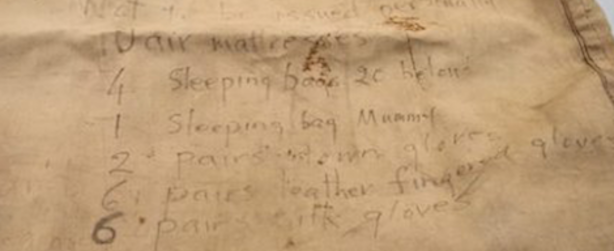 Not to be issued
air mattresses
4 Sleeping bags 20 below
1 Sleeping bag Mummy
2 pairs down gloves
6 pairs leather fingered gloves
6 pairs silk gloves